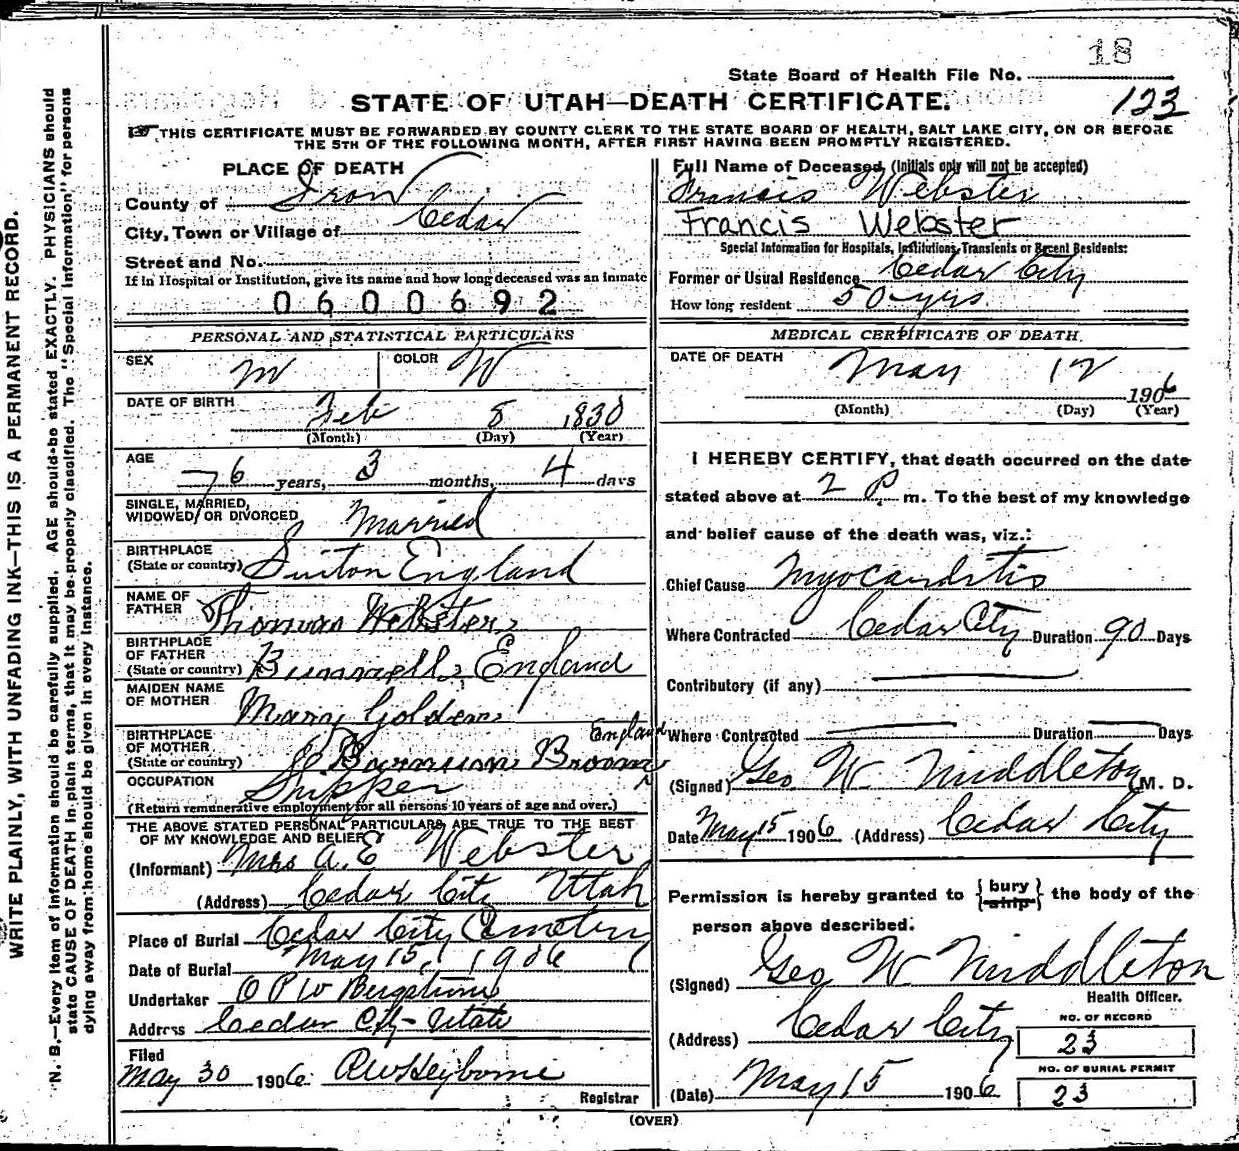 18
State Board of Health File No.
STATE OF UTAH—DEATH CERTIFICATE.
123
THIS CERTIFICATE MUST BE FORWARDED BY COUNTY CLERK TO THE STATE BOARD OF HEALTH, SALT LAKE CITY, ON OR BEFORE
THE 5TH OF THE FOLLOWING MONTH, AFTER FIRST HAVING BEEN PROMPTLY REGISTERED.
WRITE PLAINLY, WITH UNFADING INK—THIS IS A PERMANENT RECORD.
N. B.—Every item of information should be carefully supplied. AGE should be stated EXACTLY. PHYSICIANS should
state CAUSE OF DEATH in plain terms, that it may be properly classified. The "Special Information" for persons
dying away from home should be given in every instance.
PLACE OF DEATH
County of Iron
City, Town or Village of Cedar
Street and No.
If in Hospital or Institution, give its name and how long deceased was an inmate
0600692
PERSONAL AND STATISTICAL PARTICULARS
SEX M COLOR W
DATE OF BIRTH Feb 8 1830
(Month) (Day) (Year)
AGE 76 years, 3 months, 4 days
SINGLE, MARRIED,
WIDOWED, OR DIVORCED Married
BIRTHPLACE
(State or country) England
NAME OF
FATHER Thomas Webster
BIRTHPLACE
OF FATHER
(State or country) England
MAIDEN NAME
OF MOTHER Mary Golden
BIRTHPLACE England
OF MOTHER
(State or country) Broom
OCCUPATION
(Return remunerative employment for all persons 10 years of age and over.)
THE ABOVE STATED PERSONAL PARTICULARS ARE TRUE TO THE BEST
OF MY KNOWLEDGE AND BELIEF
(Informant) Mrs A. E Webster
(Address) Cedar City Utah
Place of Burial Cedar City Cemetery
Date of Burial May 15, 1906
Undertaker O P W Bergstrom
Address Cedar City Utah
Filed
May 30 1906
Registrar
Full Name of Deceased (Initials only will not be accepted)
Francis Webster
Francis Webster
Special Information for Hospitals, Institutions, Transients or Recent Residents:
Former or Usual Residence Cedar City
How long resident 50 yrs
MEDICAL CERTIFICATE OF DEATH.
DATE OF DEATH May 12 1906
(Month) (Day) (Year)
I HEREBY CERTIFY, that death occurred on the date
stated above at 2 P. m. To the best of my knowledge
and belief cause of the death was, viz.:
Chief Cause Myocarditis
Where Contracted Cedar City Duration 90 Days
Contributory (if any)
Where Contracted Duration Days
(Signed) Geo W Middleton (M. D.
Date May 15 1906 (Address) Cedar City
Permission is hereby granted to {bury ship} the body of the
person above described.
(Signed) Geo W Middleton
Health Officer.
(Address) Cedar City
NO. OF RECORD
23
NO. OF BURIAL PERMIT
23
(Date) May 15 1906
(OVER)